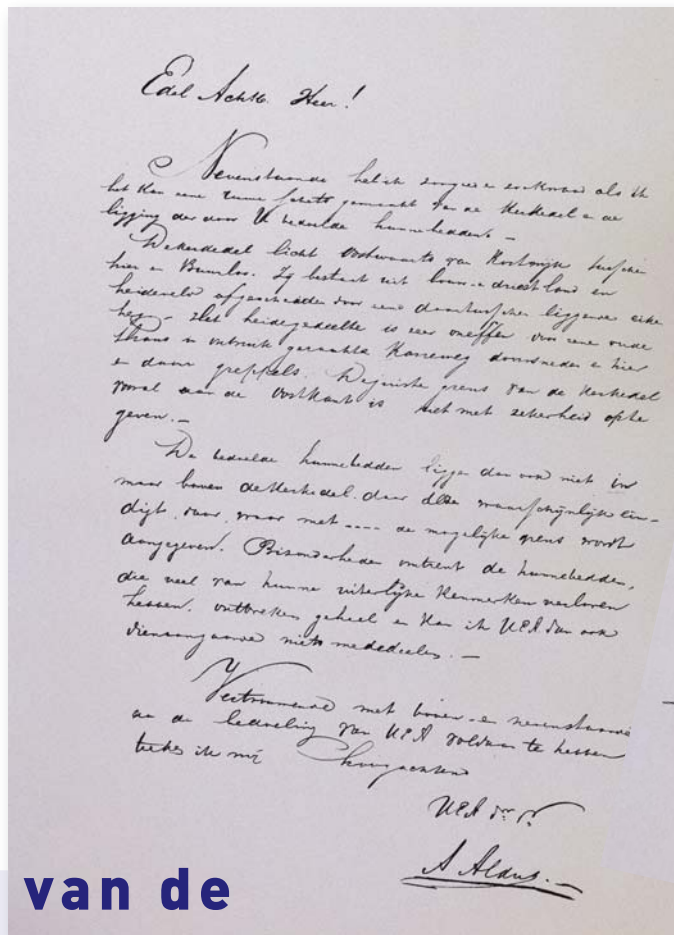 Edel Achtb. Heer!
Nevenstaande heb ik zoo goed als ik
het kan eene ruwe schets gemaakt van de Kerkedel en de
ligging der door U bedoelde hunnebedden. —
De Kerkedel licht Oostwaarts van Kortwijk tusschen
hier en Buinerloo. Zij bestaat uit bouw- & driest land en
heideveld afgescheiden door eene daartusschen liggende eike
heg. — Het heidegedeelte is zeer oneffen door eene oude
thans in onbruik geraakte Karreweg doorsneden en hier
en daar greppels. De juiste grens van de Kerkedel
vooral aan de Oostkant is niet met zekerheid op te
geven. —
De bedoelde hunnebedden liggen dan ook niet in
maar boven de Kerkedel, daar deze waarschijnlijk ein-
digt, daar, waar met ---- de mogelijke grens wordt
aangegeven. Bizonderheden omtrent de hunnebedden,
die veel van hunne uiterlijke Kenmerken verloren
hebben, ontbreken geheel en Kan ik UEA dan ook
dienaangaande niets mededeelen. —
Vertrouwende met boven- en nevenstaande
aan de bedoeling van UEA voldaan te hebben
teeken ik mij Hoogachtend
UEA dw. d.
A Aldus. —
van de